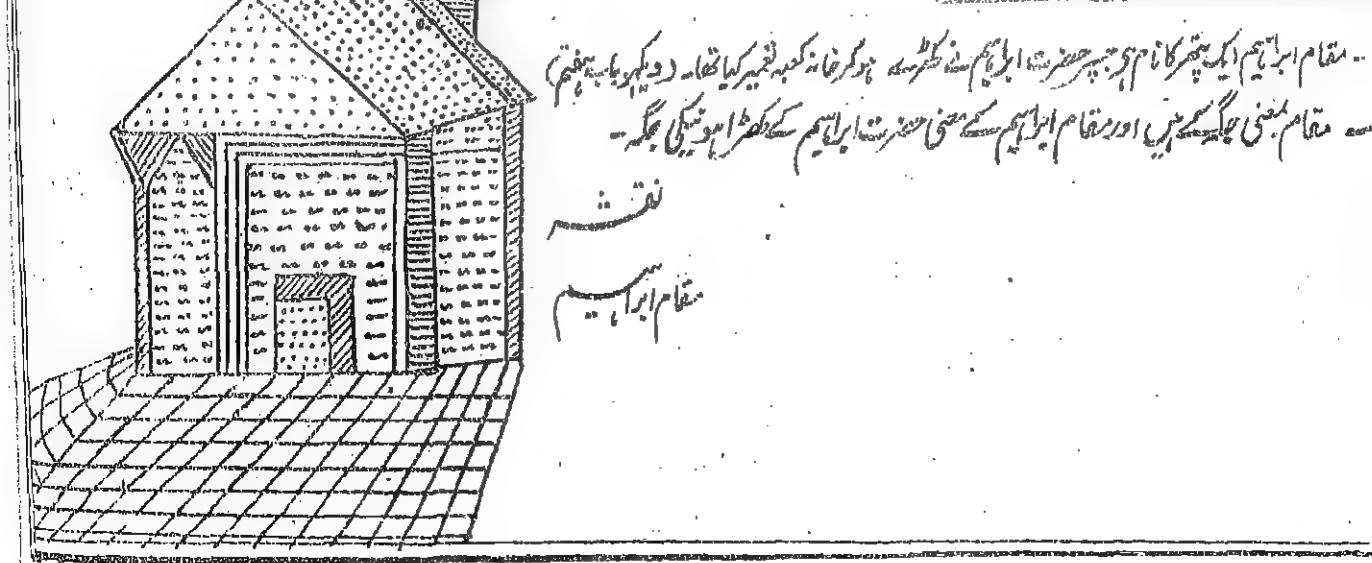 ۔ مقام ابراہیم ایک پتھر کا نام ہی جسپر حضرت ابراہیم نے کھڑے ہوکر خانہ کعبہ تعمیر کیا تھا۔ (دیکھو باب ہفتم)
۔ مقام بمعنی جگہ کے ہیں اور مقام ابراہیم کے معنی حضرت ابراہیم کے کھڑا ہونیکی جگہ۔
نقشہ
مقام ابراہیم